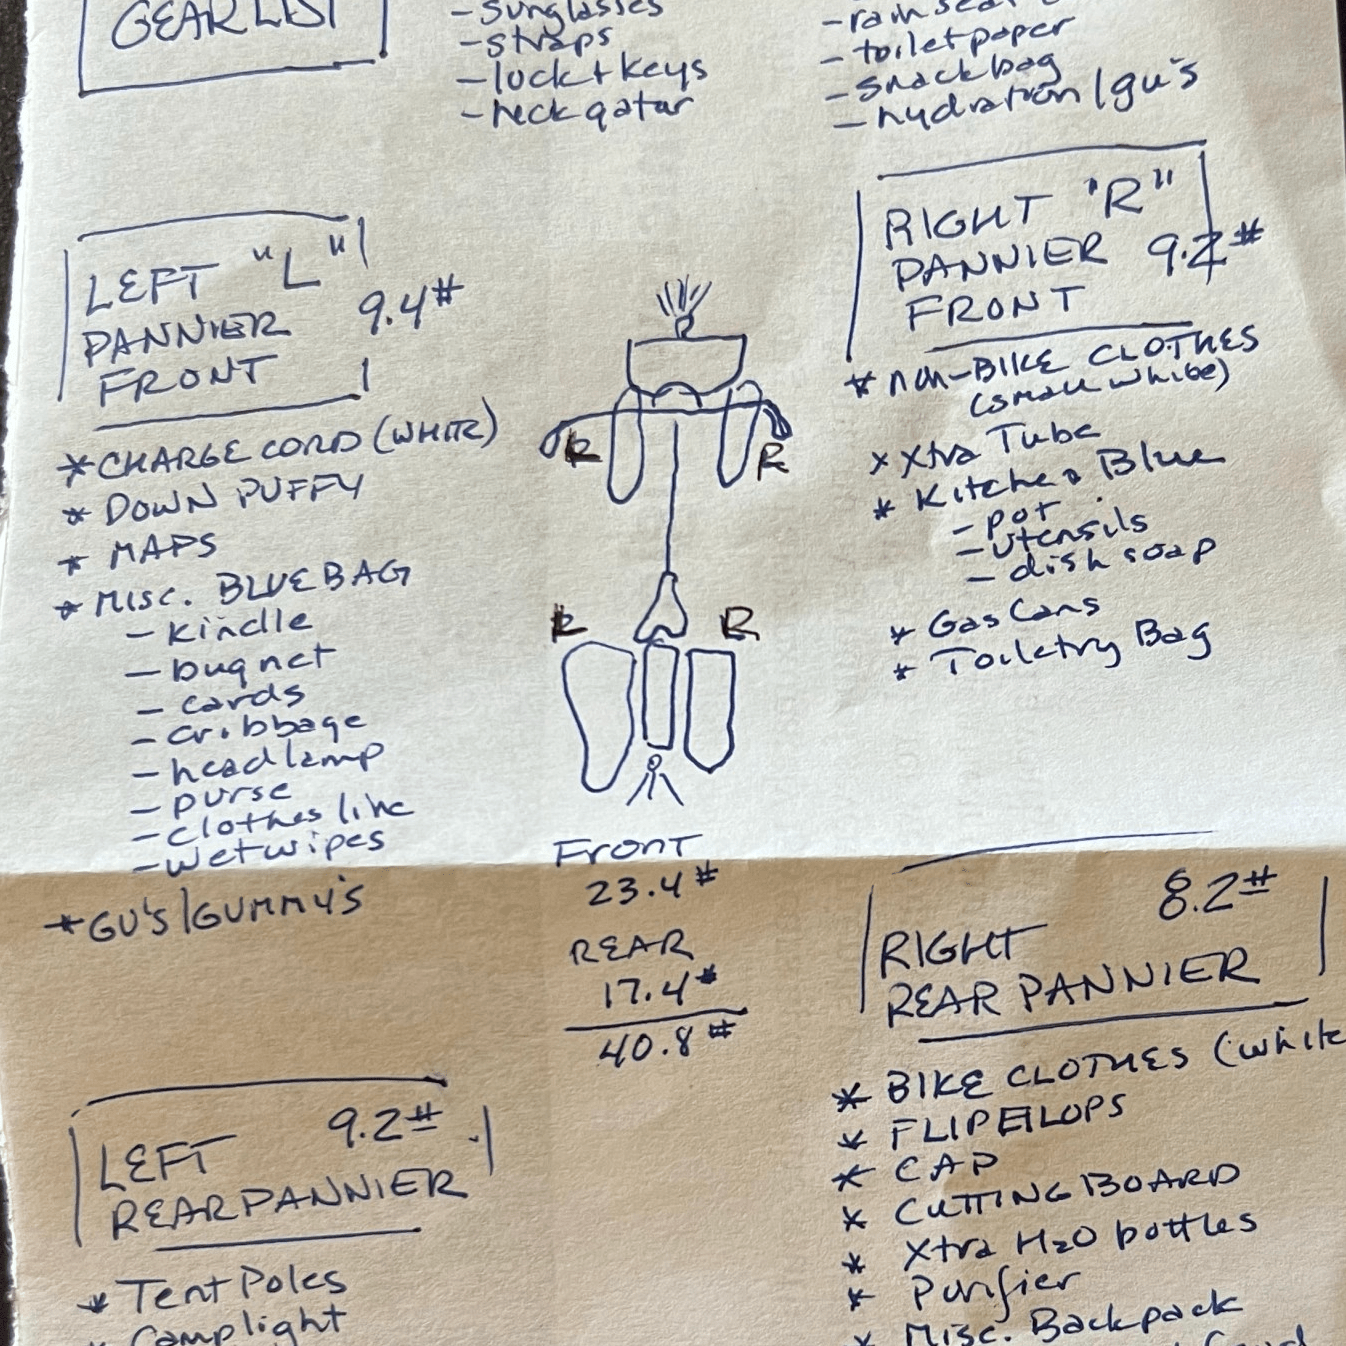 GEAR LIST
- sunglasses
- straps
- lock + keys
- neck gatar
- toilet paper
- snack bag
- hydration / gu's
LEFT "L"
PANNIER 9.4#
FRONT
* CHARGE CORD (WHITE)
* DOWN PUFFY
* MAPS
* MISC. BLUE BAG
- kindle
- bug net
- cards
- cribbage
- headlamp
- purse
- clothes line
- wet wipes
* GU'S / GUMMY'S
RIGHT "R"
PANNIER 9.2#
FRONT
* non-BIKE CLOTHES
(small white)
x Xtra Tube
* Kitchen Blue
- pot
- utensils
- dish soap
* Gas Cans
* Toiletry Bag
R
R
R
Front
23.4#
REAR
17.4#
40.8#
9.2#
LEFT
REAR PANNIER
* Tent Poles
* Camplight
8.2#
RIGHT
REAR PANNIER
* BIKE CLOTHES (white
* FLIPFLOPS
* CAP
* CUTTING BOARD
* Xtra H2O bottles
* Purifier
* Misc. Backpack